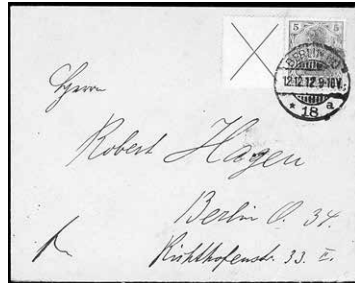 5 5
BERLIN
12.12.12.9-10V.
* 18 a
Herrn
Robert Hagen
Berlin O. 34.
Richthofenstr. 33. I.